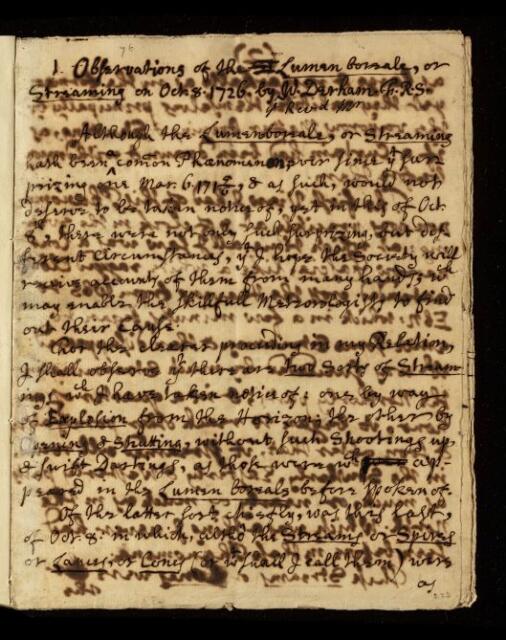 76
1. Observations of the Lumen boreale, or
Streaming on Oct. 8. 1726. by W. Derham F.R.S.
ye Revd Mr
Although the Lumen boreale, or Streaming
hath been a comon Phænomenon ever since yt sur
prizing one Mar. 6. 171 5/6, & as such, would not
deserve to be taken notice of; yet in this of Oct.
8, there were not only such surprizing, but dif
ferent Circumstances, yt I hope the Society will
receive accounts of them from many hands, wch
may enable the skilfull Meteorologists to find
out their Cause.
For the clearer proceeding in my Relation
I shall observe yt there are two Sorts of Stream
ing, wch I have taken notice of: one by way
of Explosion from the Horizon; the other by
opening & Shutting, without such Shootings up,
& swift Dartings, as those were wch ap-
peared in the Lumen boreale before spoken of.
Of the latter sort chiefly, was this last,
of Oct. 8. in which, altho the Streams or Spires
or Lances, or Cones (or wt shall I call them) were
as